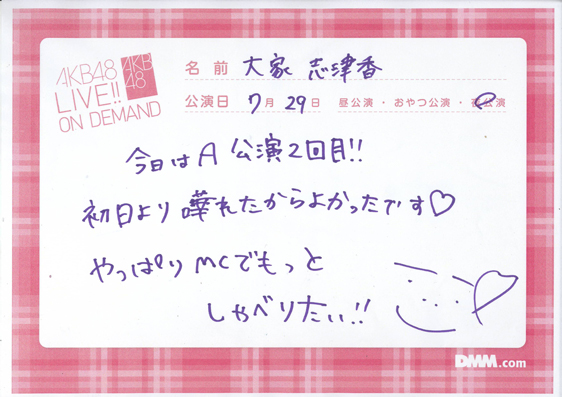 AKB48
LIVE!!
ON DEMAND
AKB
48
名前 大家 志津香
公演日 7月29日 昼公演・おやつ公演・夜公演
今日はA公演2回目!!
初日より 喋れたからよかったです♡
やっぱりMCでもっと
しゃべりたい!!
DMM.com